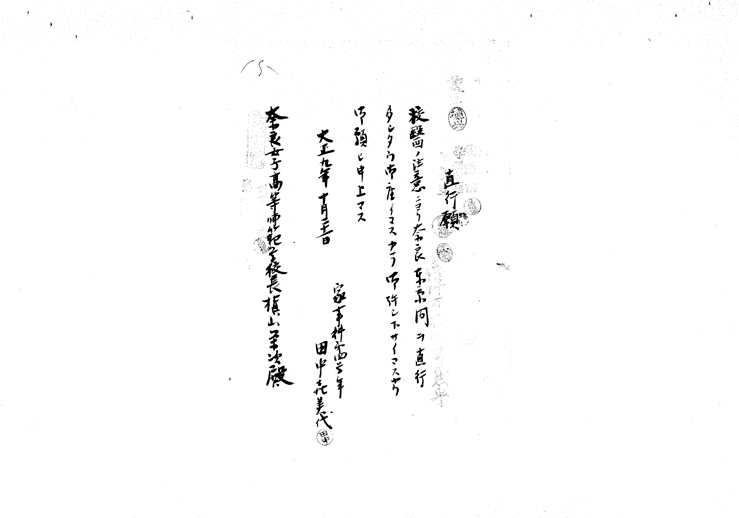 直行願
校醫ノ注意ニヨリ奈良東京間ヲ直行
タシタウ御座イマスカラ御許シ下サイマスヤウ
御願ヒ申上マス
大正九年十月二十一日
家事科第四学年
田中喜美代
田中
奈良女子高等師範学校長槙山栄次殿